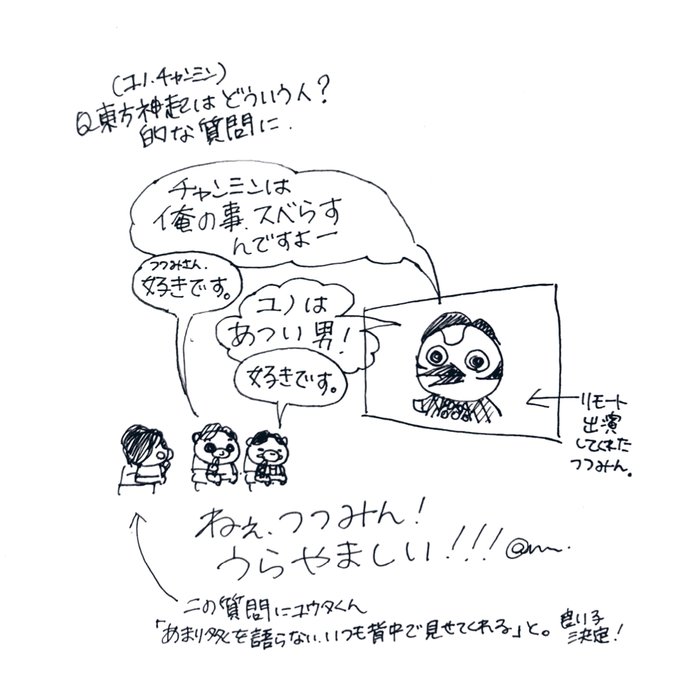 (ユノ.チャンミン)
Q東方神起はどういう人?
的な質問に.
チャンミンは
俺の事.スベらす
んですよー
つつみさん.
好きです。
ユノは
あつい男!
好きです。
リモート
出演
してくれた
つつみん。
ねぇ、つつみん!
うらやましい!!!
この質問にユウタくん
「あまり多くを語らない.いつも背中で見せてくれる」と。
良い子
決定!